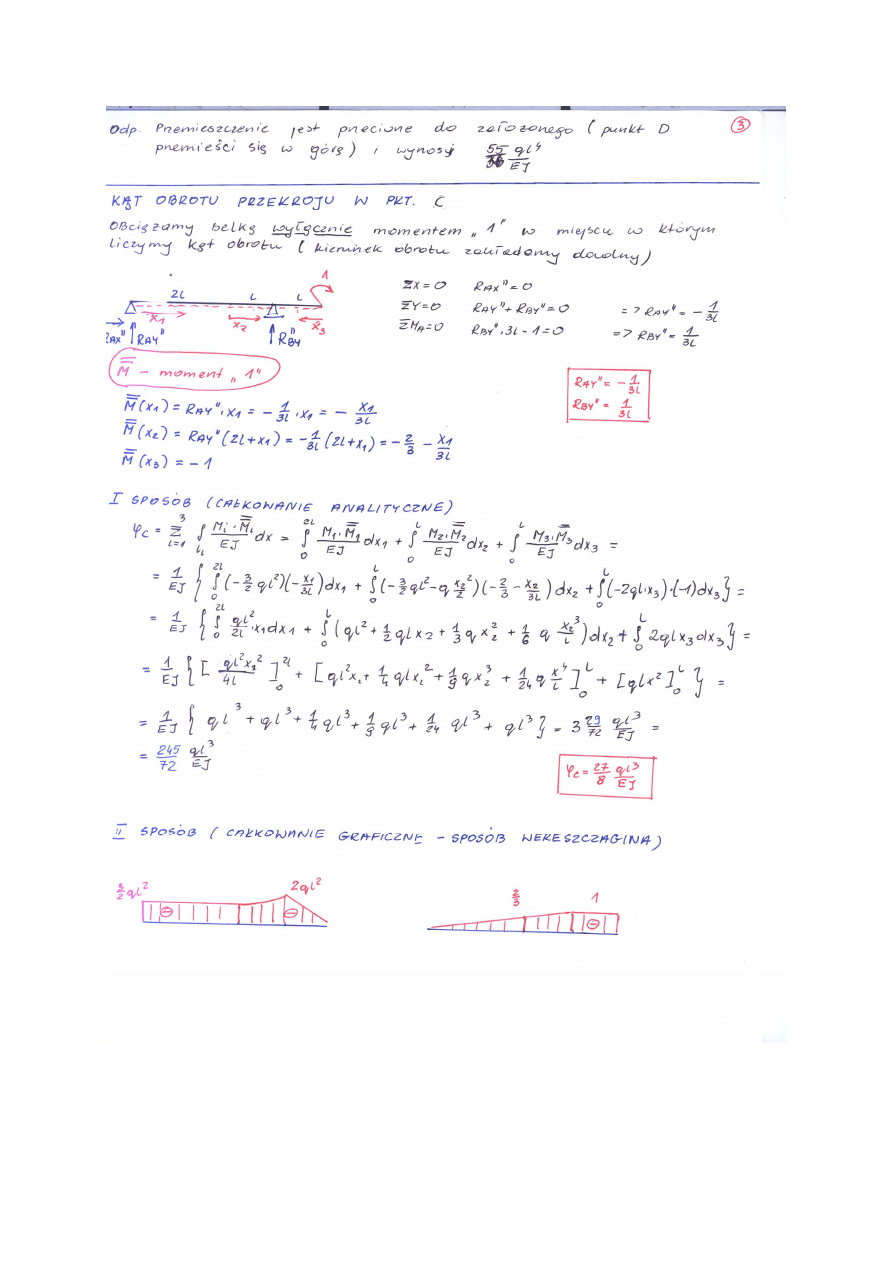 Odp. Przemieszczenie jest przeciwne do założonego ( punkt D
③
przemieści się w górę) i wynosi 55/36 ql⁴/EJ
KĄT OBROTU PRZEKROJU W PKT. C
Obciążamy belkę wyłącznie momentem „1" w miejscu w którym
liczymy kąt obrotu ( kierunek obrotu zakładamy dowolny)
1
2l l l
x₁ x₂ x₃
RAX" RAY" RBY"
ΣX=0 RAX"=0
ΣY=0 RAY"+RBY"=0 => RAY"= - 1/3l
ΣMA=0 RBY"·3l - 1=0 => RBY"= 1/3l
M̿ - moment „1"
RAY"= - 1/3l
RBY"= 1/3l
M̿(x₁) = RAY"·x₁ = - 1/3l ·x₁ = - x₁/3l
M̿(x₂) = RAY"(2l+x₁) = -1/3l (2l+x₁) = - 2/3 - x₁/3l
M̿(x₃) = -1
I SPOSÓB (CAŁKOWANIE ANALITYCZNE)
φc = Σ³ᵢ₌₁ ∫Lᵢ Mᵢ·M̿ᵢ/EJ dx = ∫₀²ˡ M₁·M̿₁/EJ dx₁ + ∫₀ˡ M₂·M̿₂/EJ dx₂ + ∫₀ˡ M₃·M̿₃/EJ dx₃ =
= 1/EJ { ∫₀²ˡ(-3/2 ql²)(-x₁/3l)dx₁ + ∫₀ˡ(-3/2 ql²-q x₂²/2)(-2/3 - x₂/3l) dx₂ + ∫₀ˡ(-2ql·x₃)·(-1)dx₃} =
= 1/EJ { ∫₀²ˡ ql²/2l ·x₁dx₁ + ∫₀ˡ (ql²+ 1/2 qlx₂ + 1/3 qx₂² + 1/6 q x₂³/l)dx₂ + ∫₀ˡ 2qlx₃dx₃} =
= 1/EJ {[ ql²x₁²/4l ]₀²ˡ + [ql²x₂+ 1/4 qlx₂² + 1/9 qx₂³ + 1/24 q x⁴/l]₀ˡ + [qlx²]₀ˡ } =
= 1/EJ { ql³ + ql³ + 1/4 ql³ + 1/9 ql³ + 1/24 ql³ + ql³} = 3 29/72 ql³/EJ =
= 245/72 ql³/EJ
φc = 27/8 ql³/EJ
II SPOSÓB ( CAŁKOWANIE GRAFICZNE - SPOSÓB WEKESZCZAGINA)
3/2 ql² 2ql²
⊖ ⊖
2/3 1
⊖